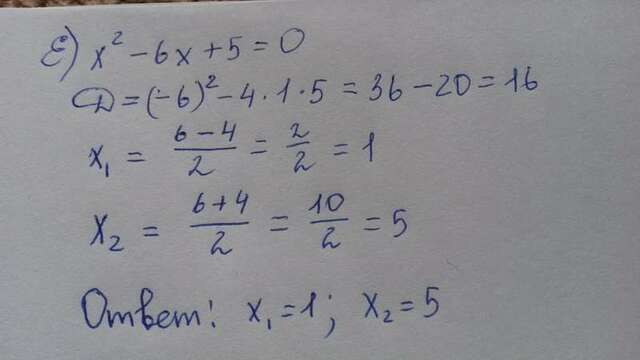 Е) x² − 6x + 5 = 0
D = (−6)² − 4 · 1 · 5 = 36 − 20 = 16
x₁ = (6 − 4)/2 = 2/2 = 1
x₂ = (6 + 4)/2 = 10/2 = 5
Ответ: x₁ = 1; x₂ = 5